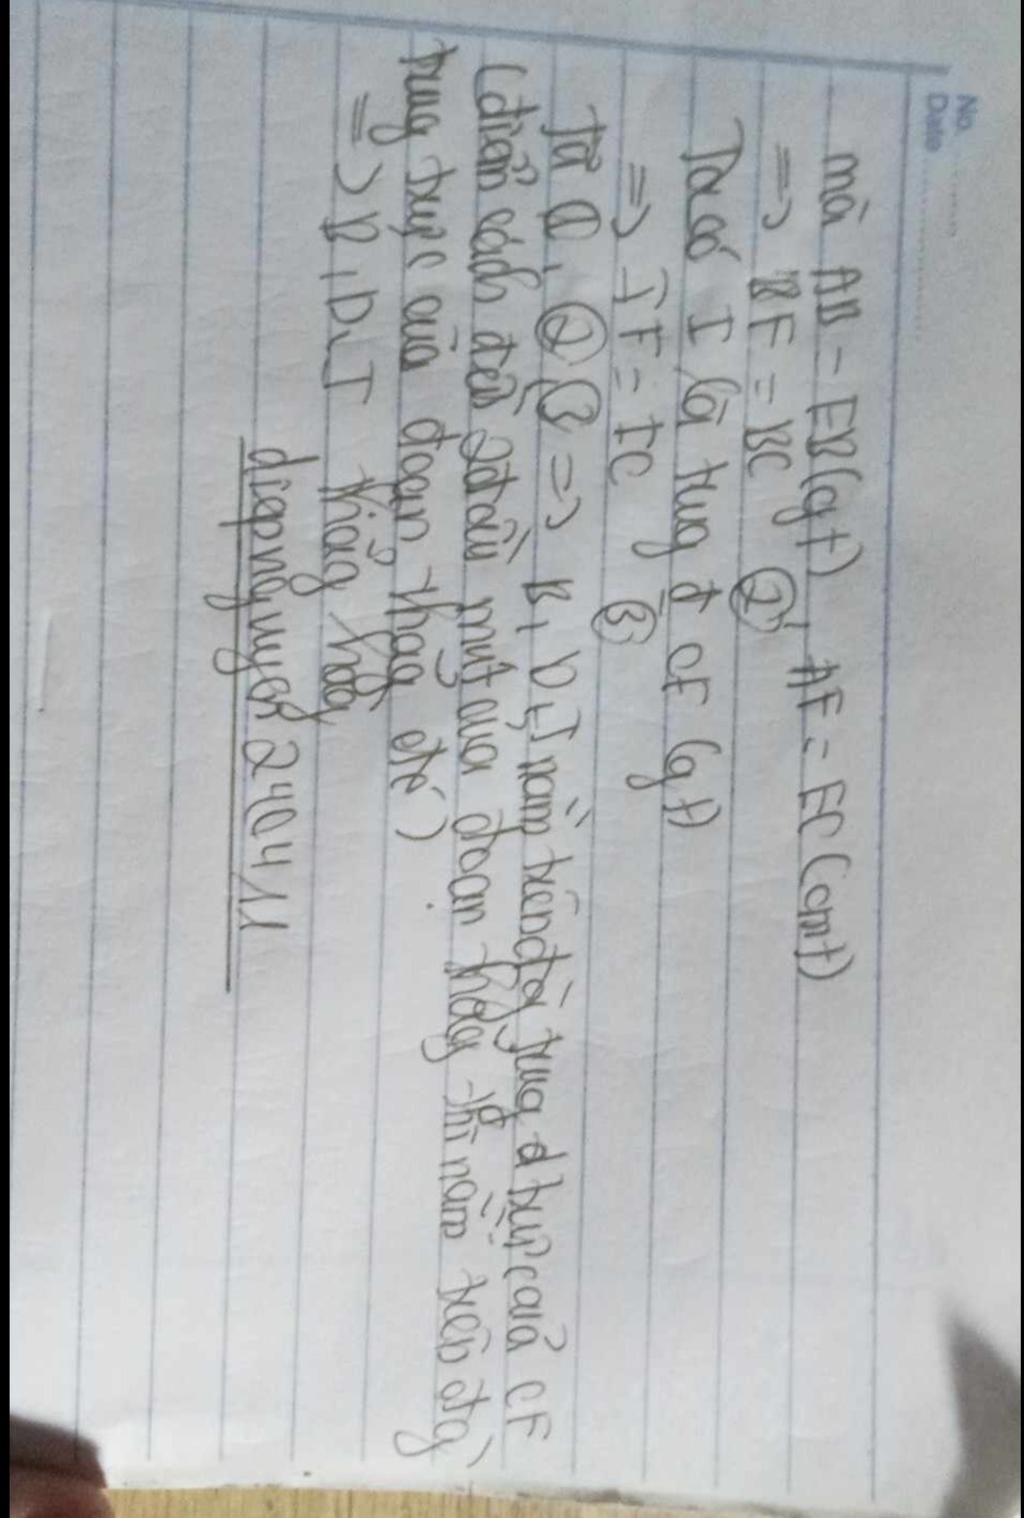 No.
Date
mà AB = EB (gt), AF = EC (cmt)
=> BF = BC ②
Ta có I là trung đ CF (gt)
=> IF = IC ③
Từ ①, ②, ③ => B, D, I nằm trên đg trung trực của CF
(điểm cách đều 2 đầu mút của đoạn thẳng thì nằm trên đtg
trung trực của đoạn thẳng đó)
=> B, D, I thẳng hàng
diepnguyen240411